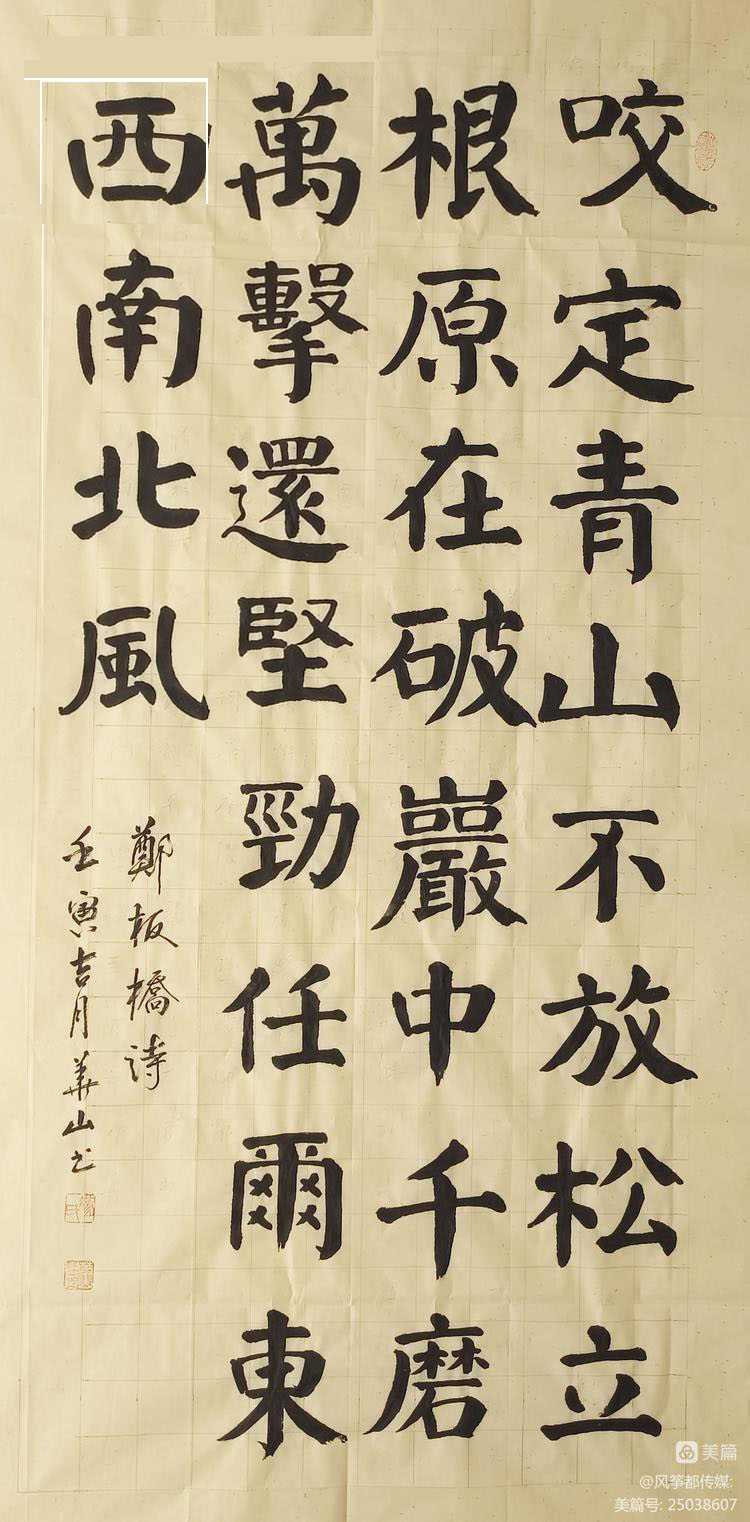 咬定青山不放松立
根原在破巖中千磨
萬擊還堅勁任爾東
西南北風
鄭板橋詩
壬寅吉月華山书
美篇
@风筝都传媒:
美篇号: 25038607